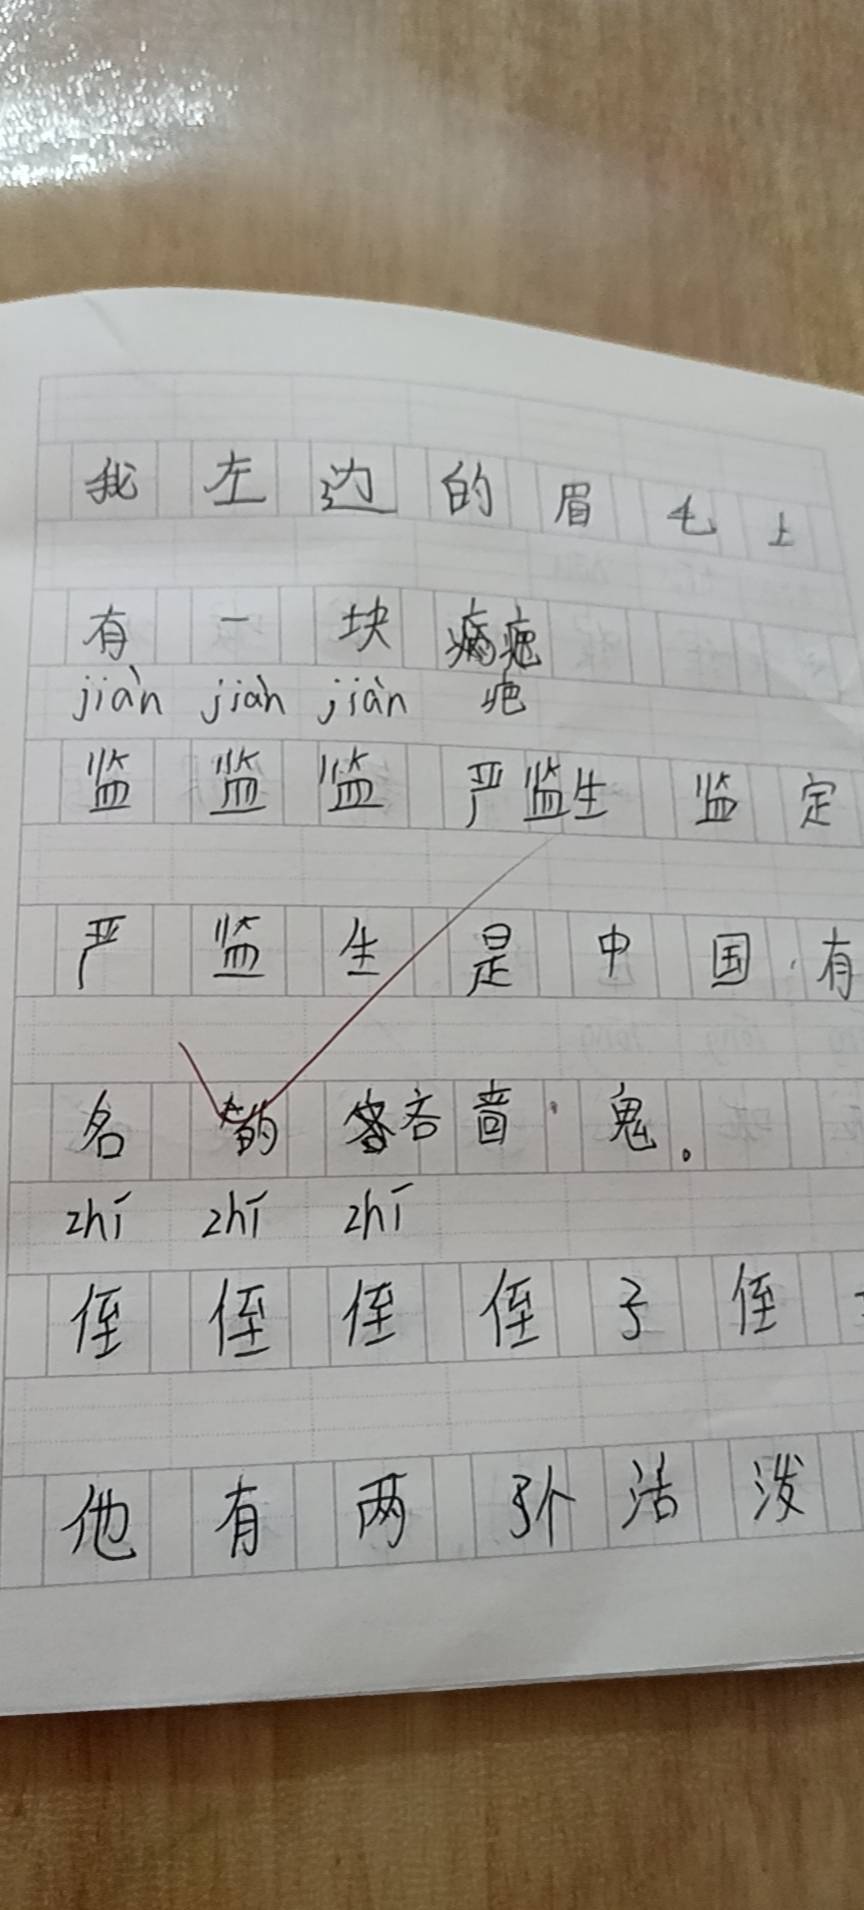 我左边的眉毛上
有一块疤
jiàn jiàn jiàn 疤
监监监严监生监定
严监生是中国有
名的吝啬鬼。
zhí zhí zhí
侄侄侄侄子侄
他有两个活泼